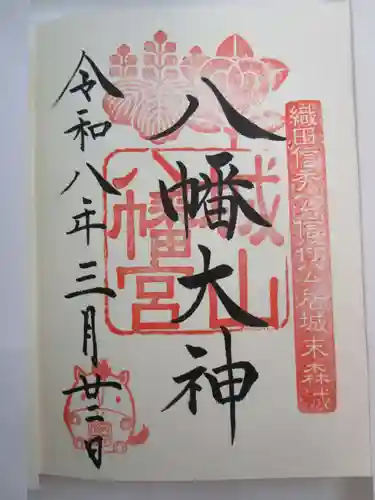 織田信秀公信行公居城末森城
八幡大神
城山
八幡宮
令和八年三月廿二日